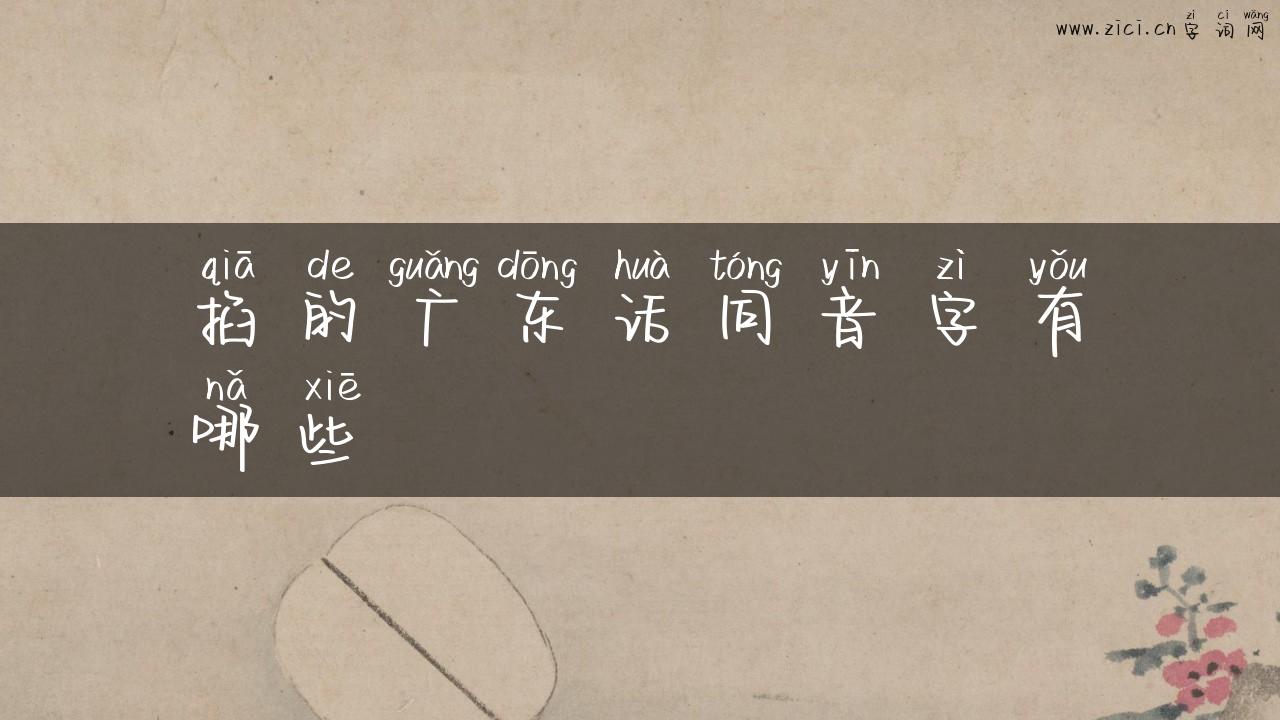 zì cí wǎng
www.zici.cn 字词网
qiā de guǎng dōng huà tóng yīn zì yǒu
掐的广东话同音字有
nǎ xiē
哪些